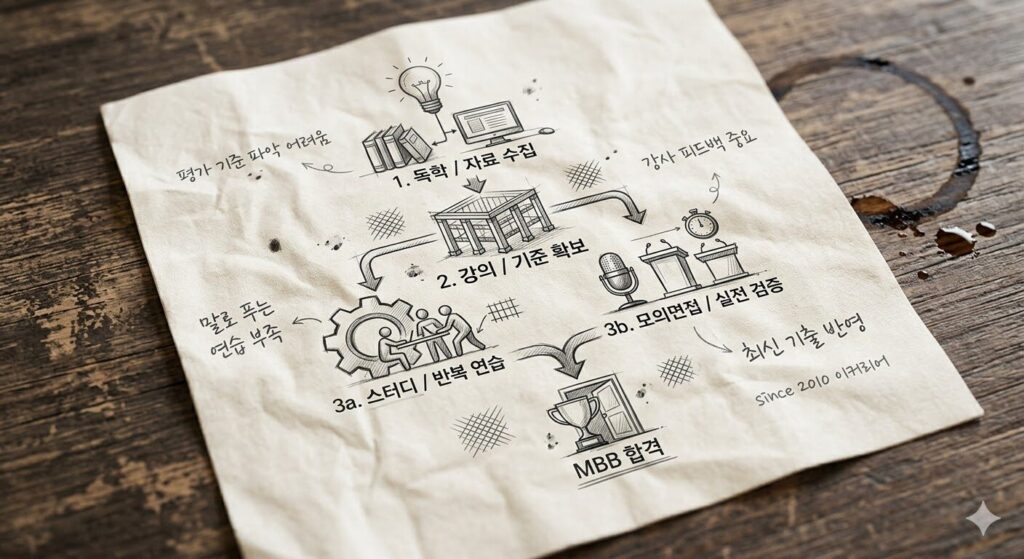 평가 기준 파악 어려움
1. 독학 / 자료 수집
강사 피드백 중요
2. 강의 / 기준 확보
말로 푸는
연습 부족
3b. 모의면접 / 실전 검증
최신 기출 반영
3a. 스터디 / 반복 연습
since 2010 이커리어
MBB 합격